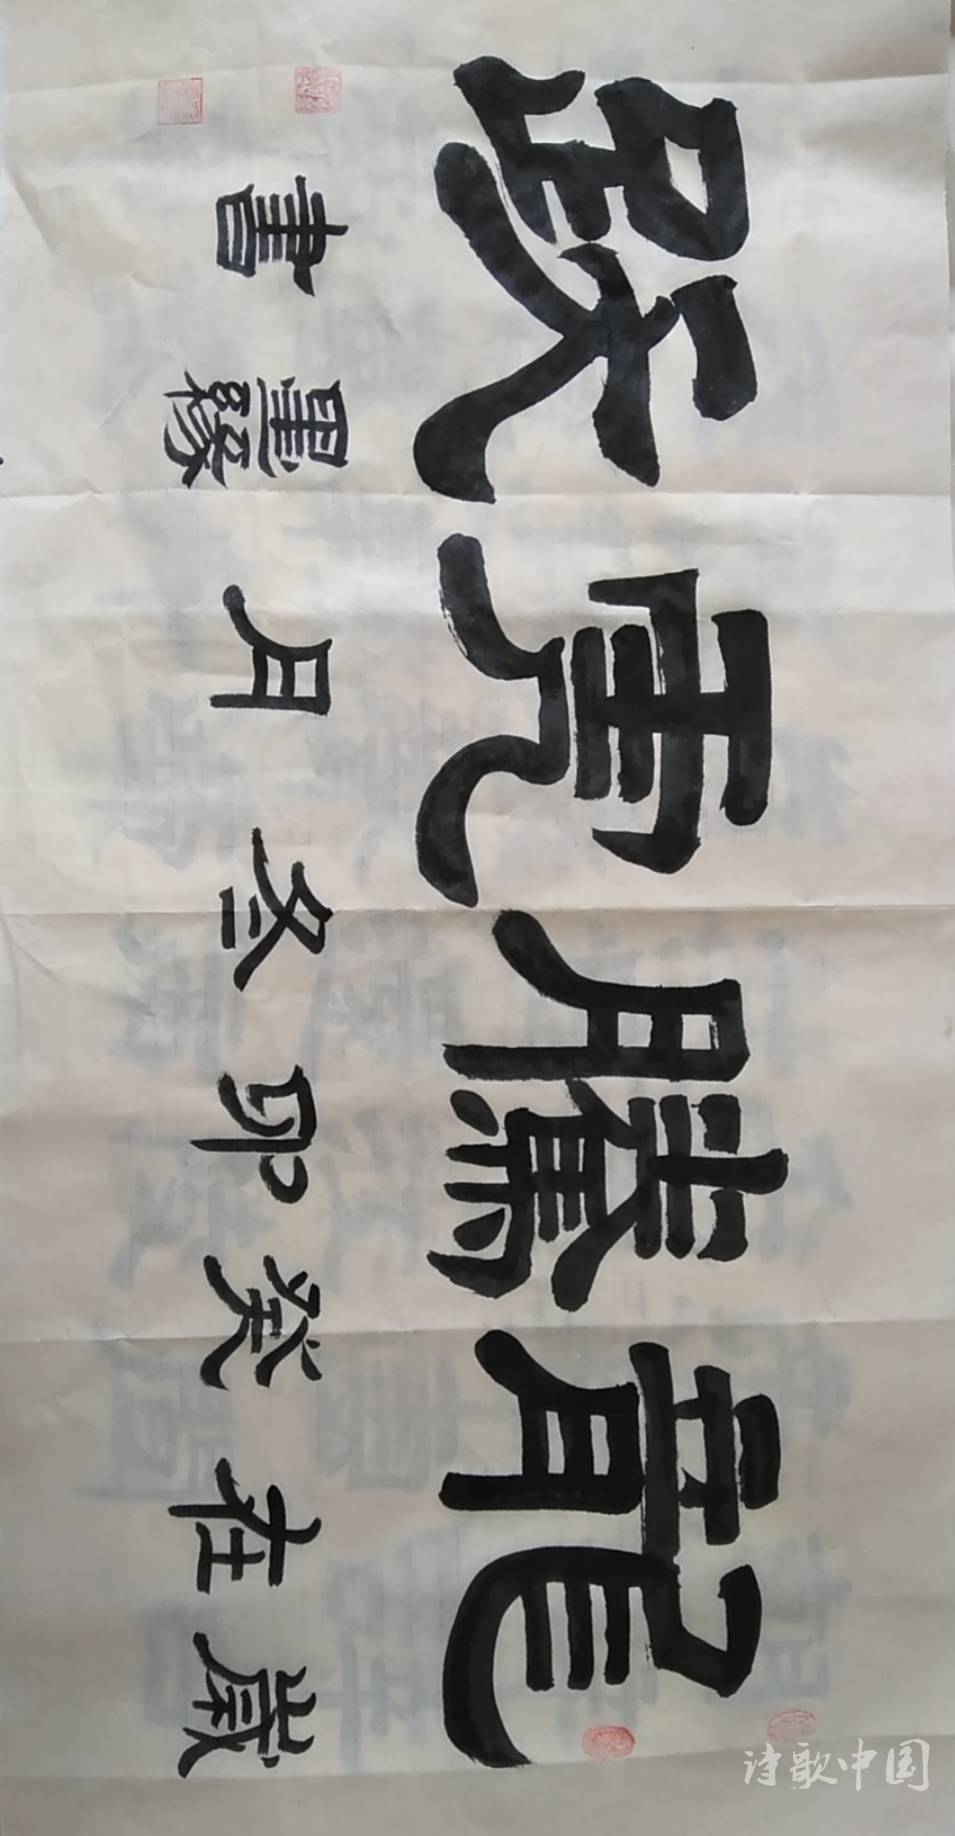 龍騰虎跃
歲在癸卯冬月墨緣書
诗歌中国